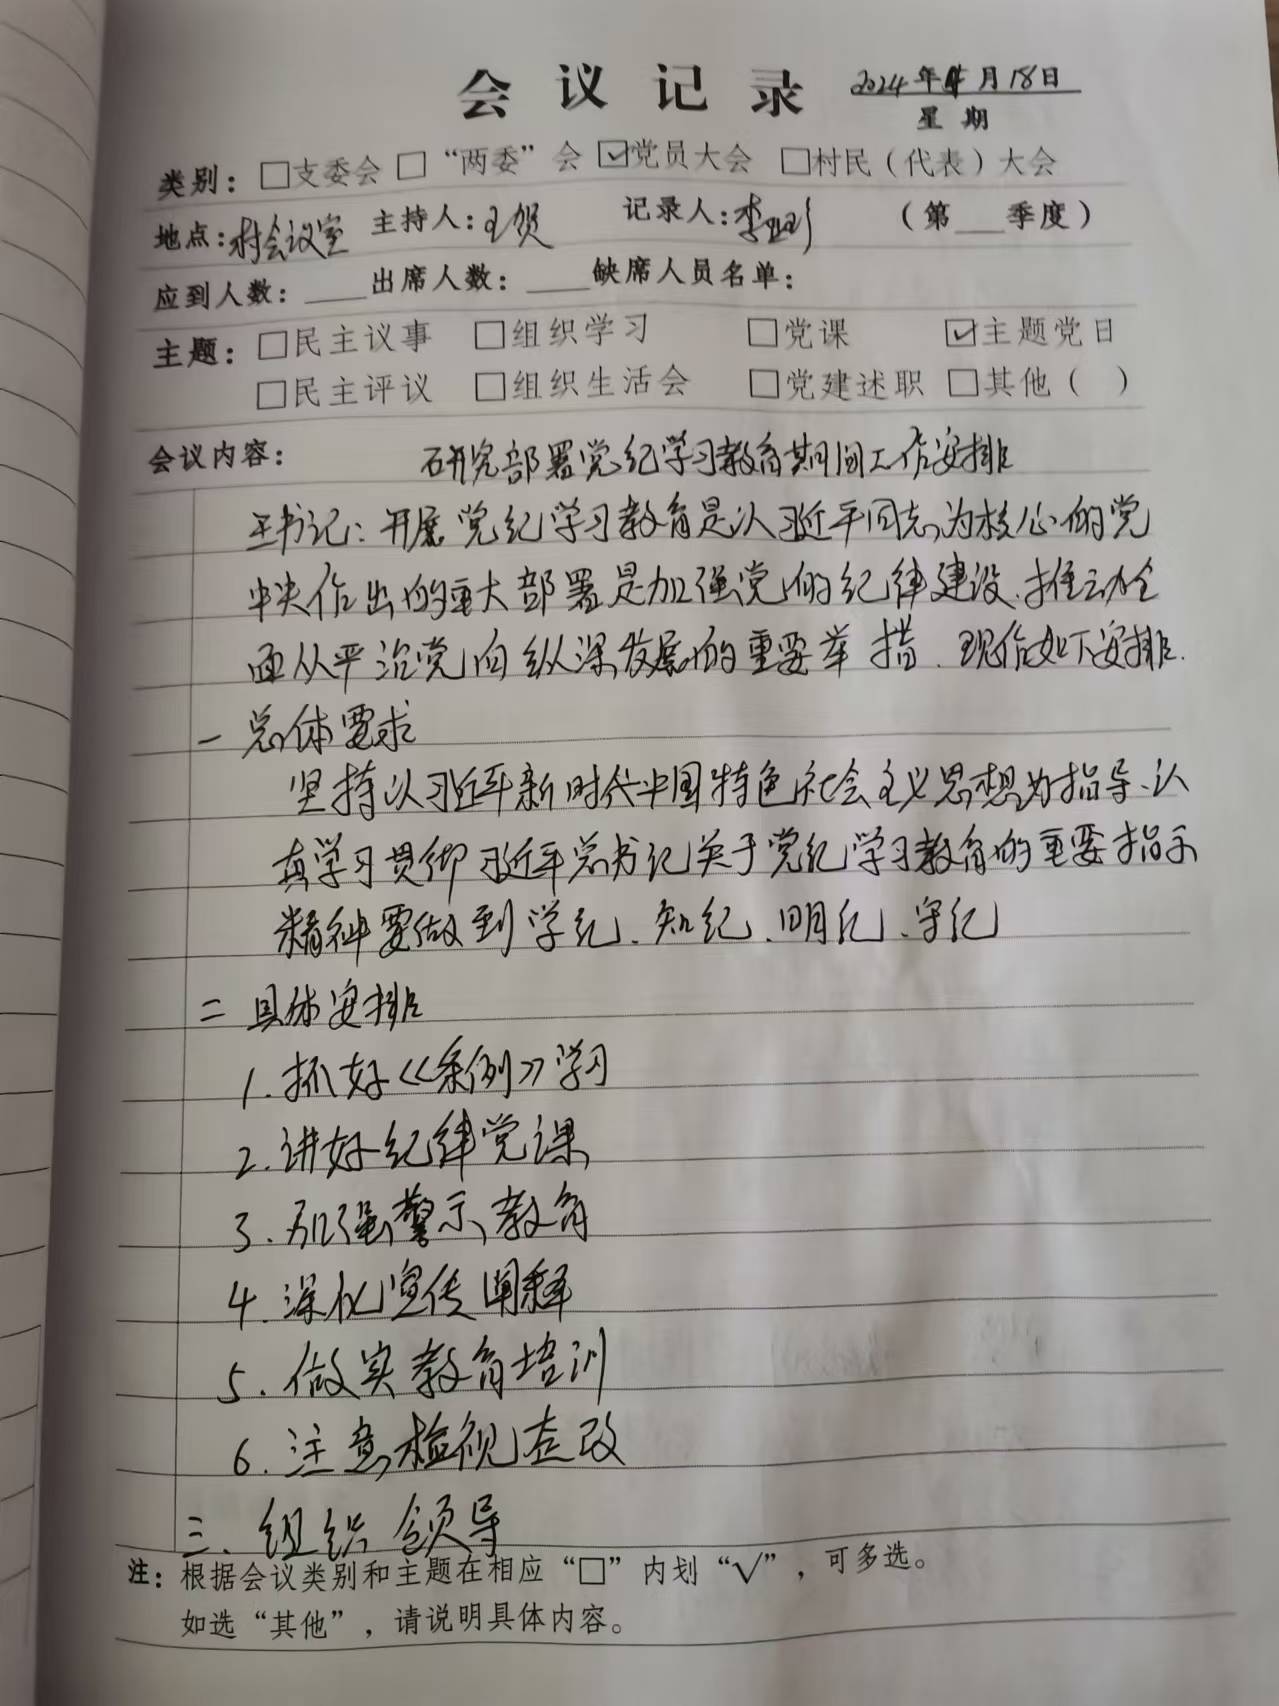 会议记录 2024年4月18日
星期
类别：□支委会 □“两委”会 ☑党员大会 □村民（代表）大会
地点：村会议室 主持人：王贺 记录人：李 （第___季度）
应到人数：____出席人数：____缺席人员名单：
主题：□民主议事 □组织学习 □党课 ☑主题党日
□民主评议 □组织生活会 □党建述职 □其他（ ）
会议内容： 研究部署党纪学习教育期间工作安排
王书记：开展党纪学习教育是以习近平同志为核心的党
中央作出的重大部署是加强党的纪律建设、推动全
面从严治党向纵深发展的重要举措．现作如下安排．
一 总体要求
坚持以习近平新时代中国特色社会主义思想为指导、认
真学习贯彻习近平总书记关于党纪学习教育的重要指示
精神要做到学纪、知纪、明纪、守纪
二 具体安排
1.抓好《条例》学习
2.讲好纪律党课
3.加强警示教育
4.深化宣传阐释
5.做实教育培训
6.注意检视查改
三、组织领导
注：根据会议类别和主题在相应“□”内划“√”，可多选。
如选“其他”，请说明具体内容。